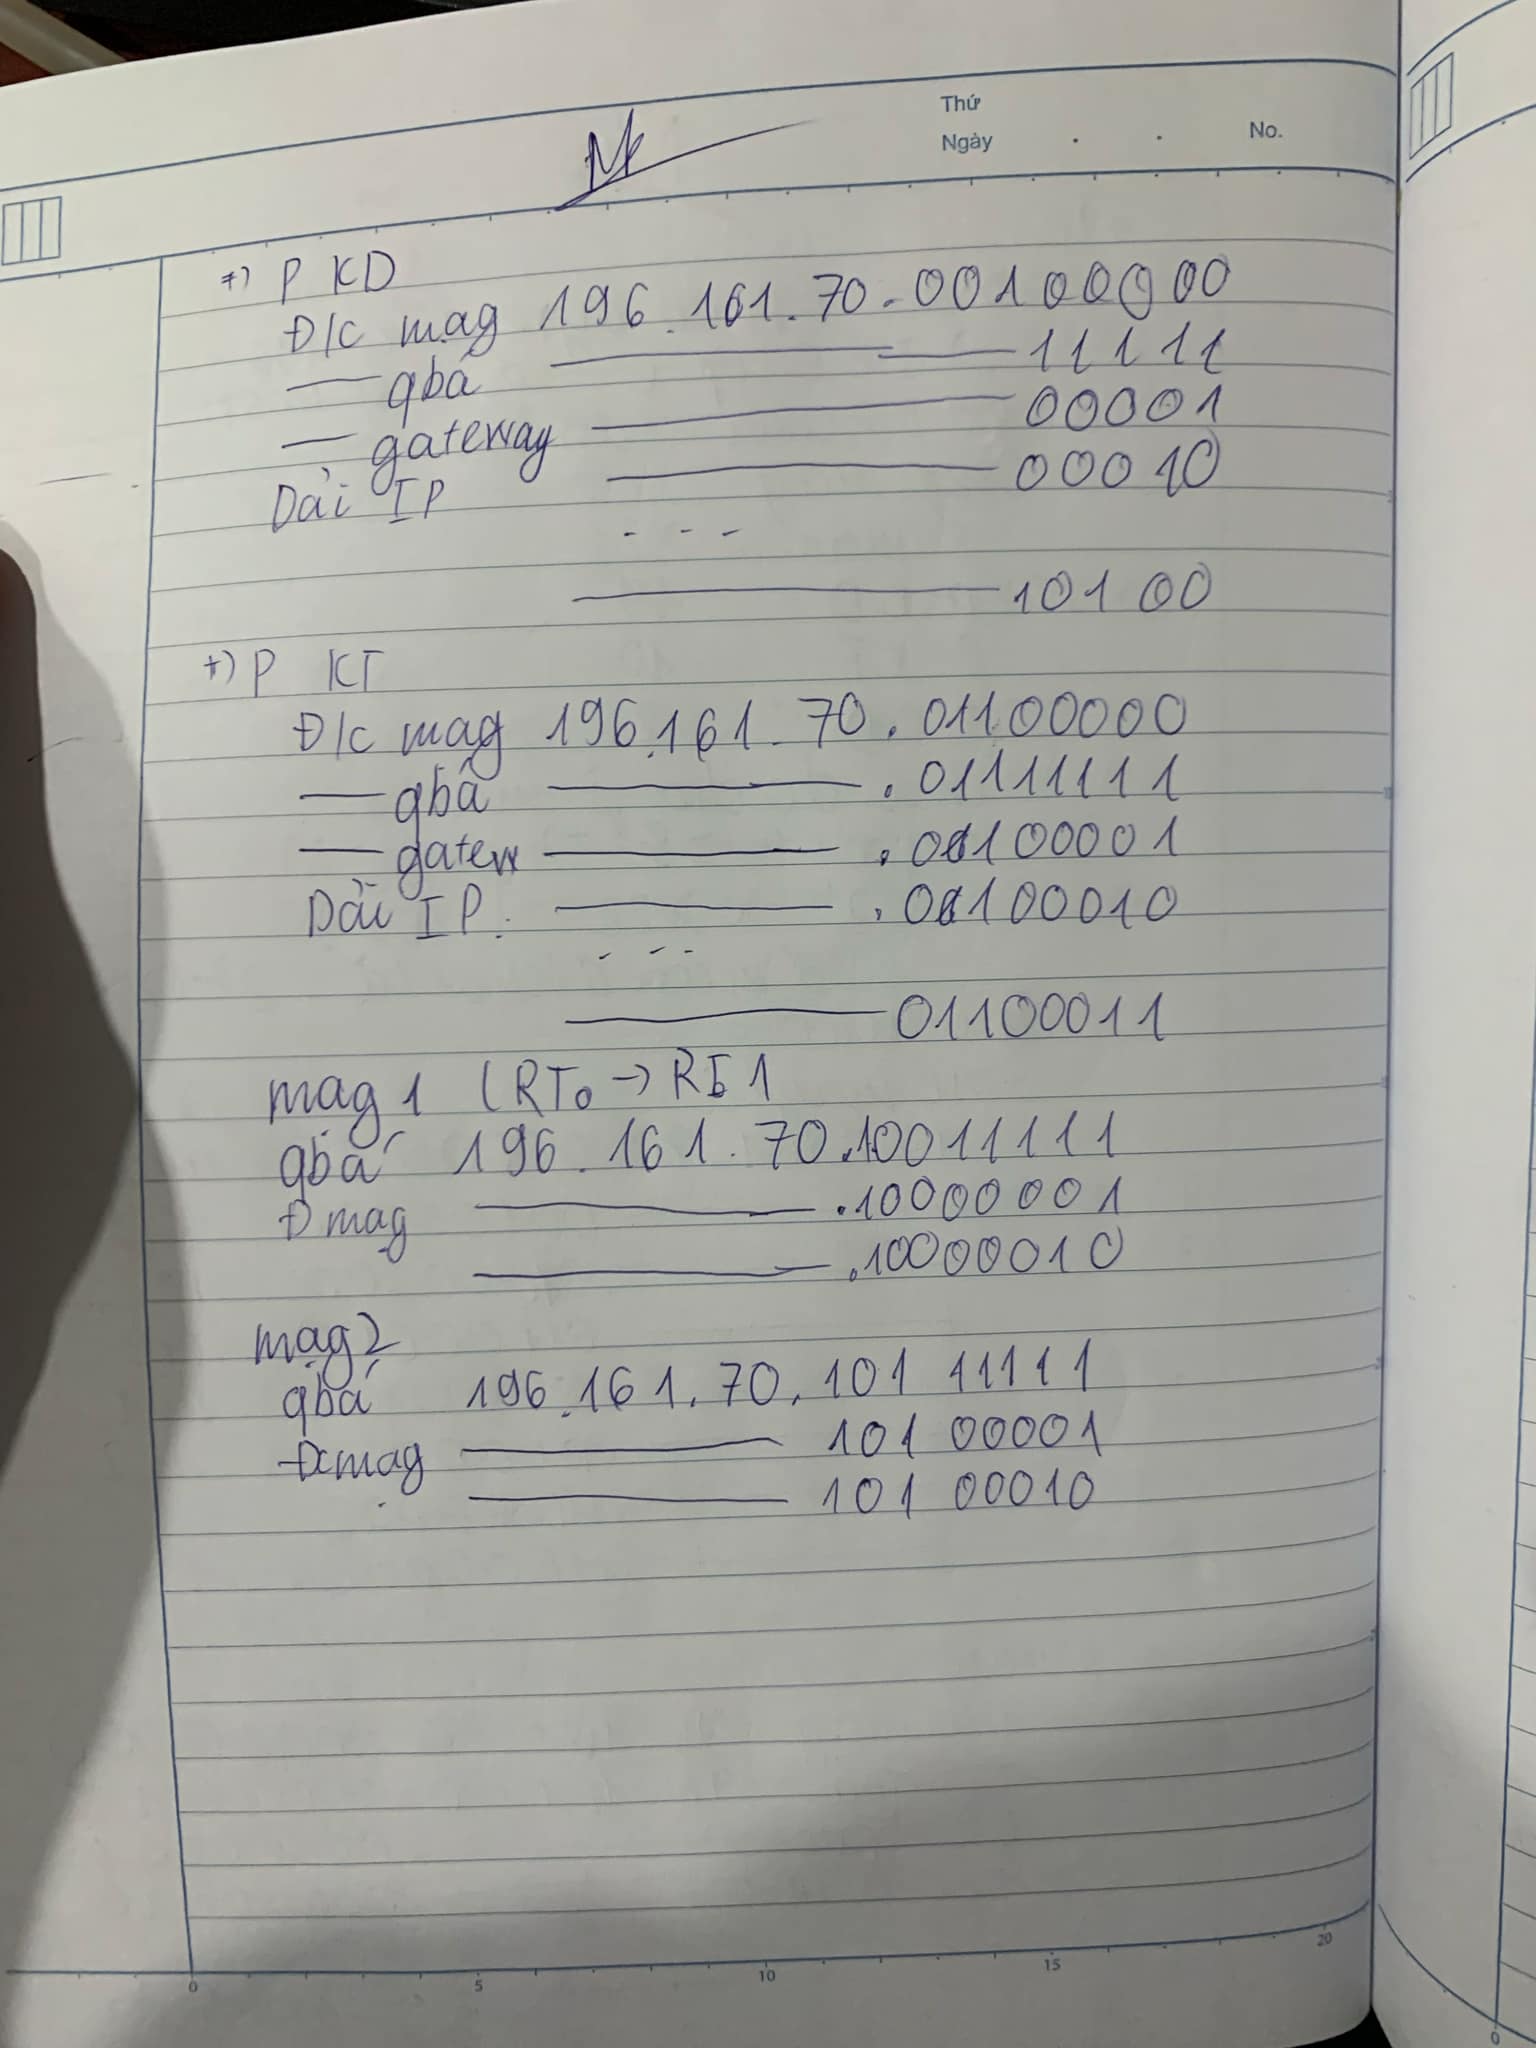 Thứ
Ngày . . No.
+) P KD
Đ/c mag 196.161.70.00100000
— qbá ——— 11111
— gateway ——— 00001
Dải IP ——— 00010
- - -
——— 10100
+) P KT
Đ/c mag 196.161.70.01100000
— qbá ——— .01111111
— gatew ——— .01100001
Dải IP. ——— .01100010
- - -
——— 01100011
mag 1 (RT0 → RT1
qbá 196.161.70.10011111
Đ mag ——— .10000001
——— .10000010
mag 2
qbá 196.161.70.101 11111
Đc mag ——— 101 00001
——— 101 00010
0 5 10 15 20
0